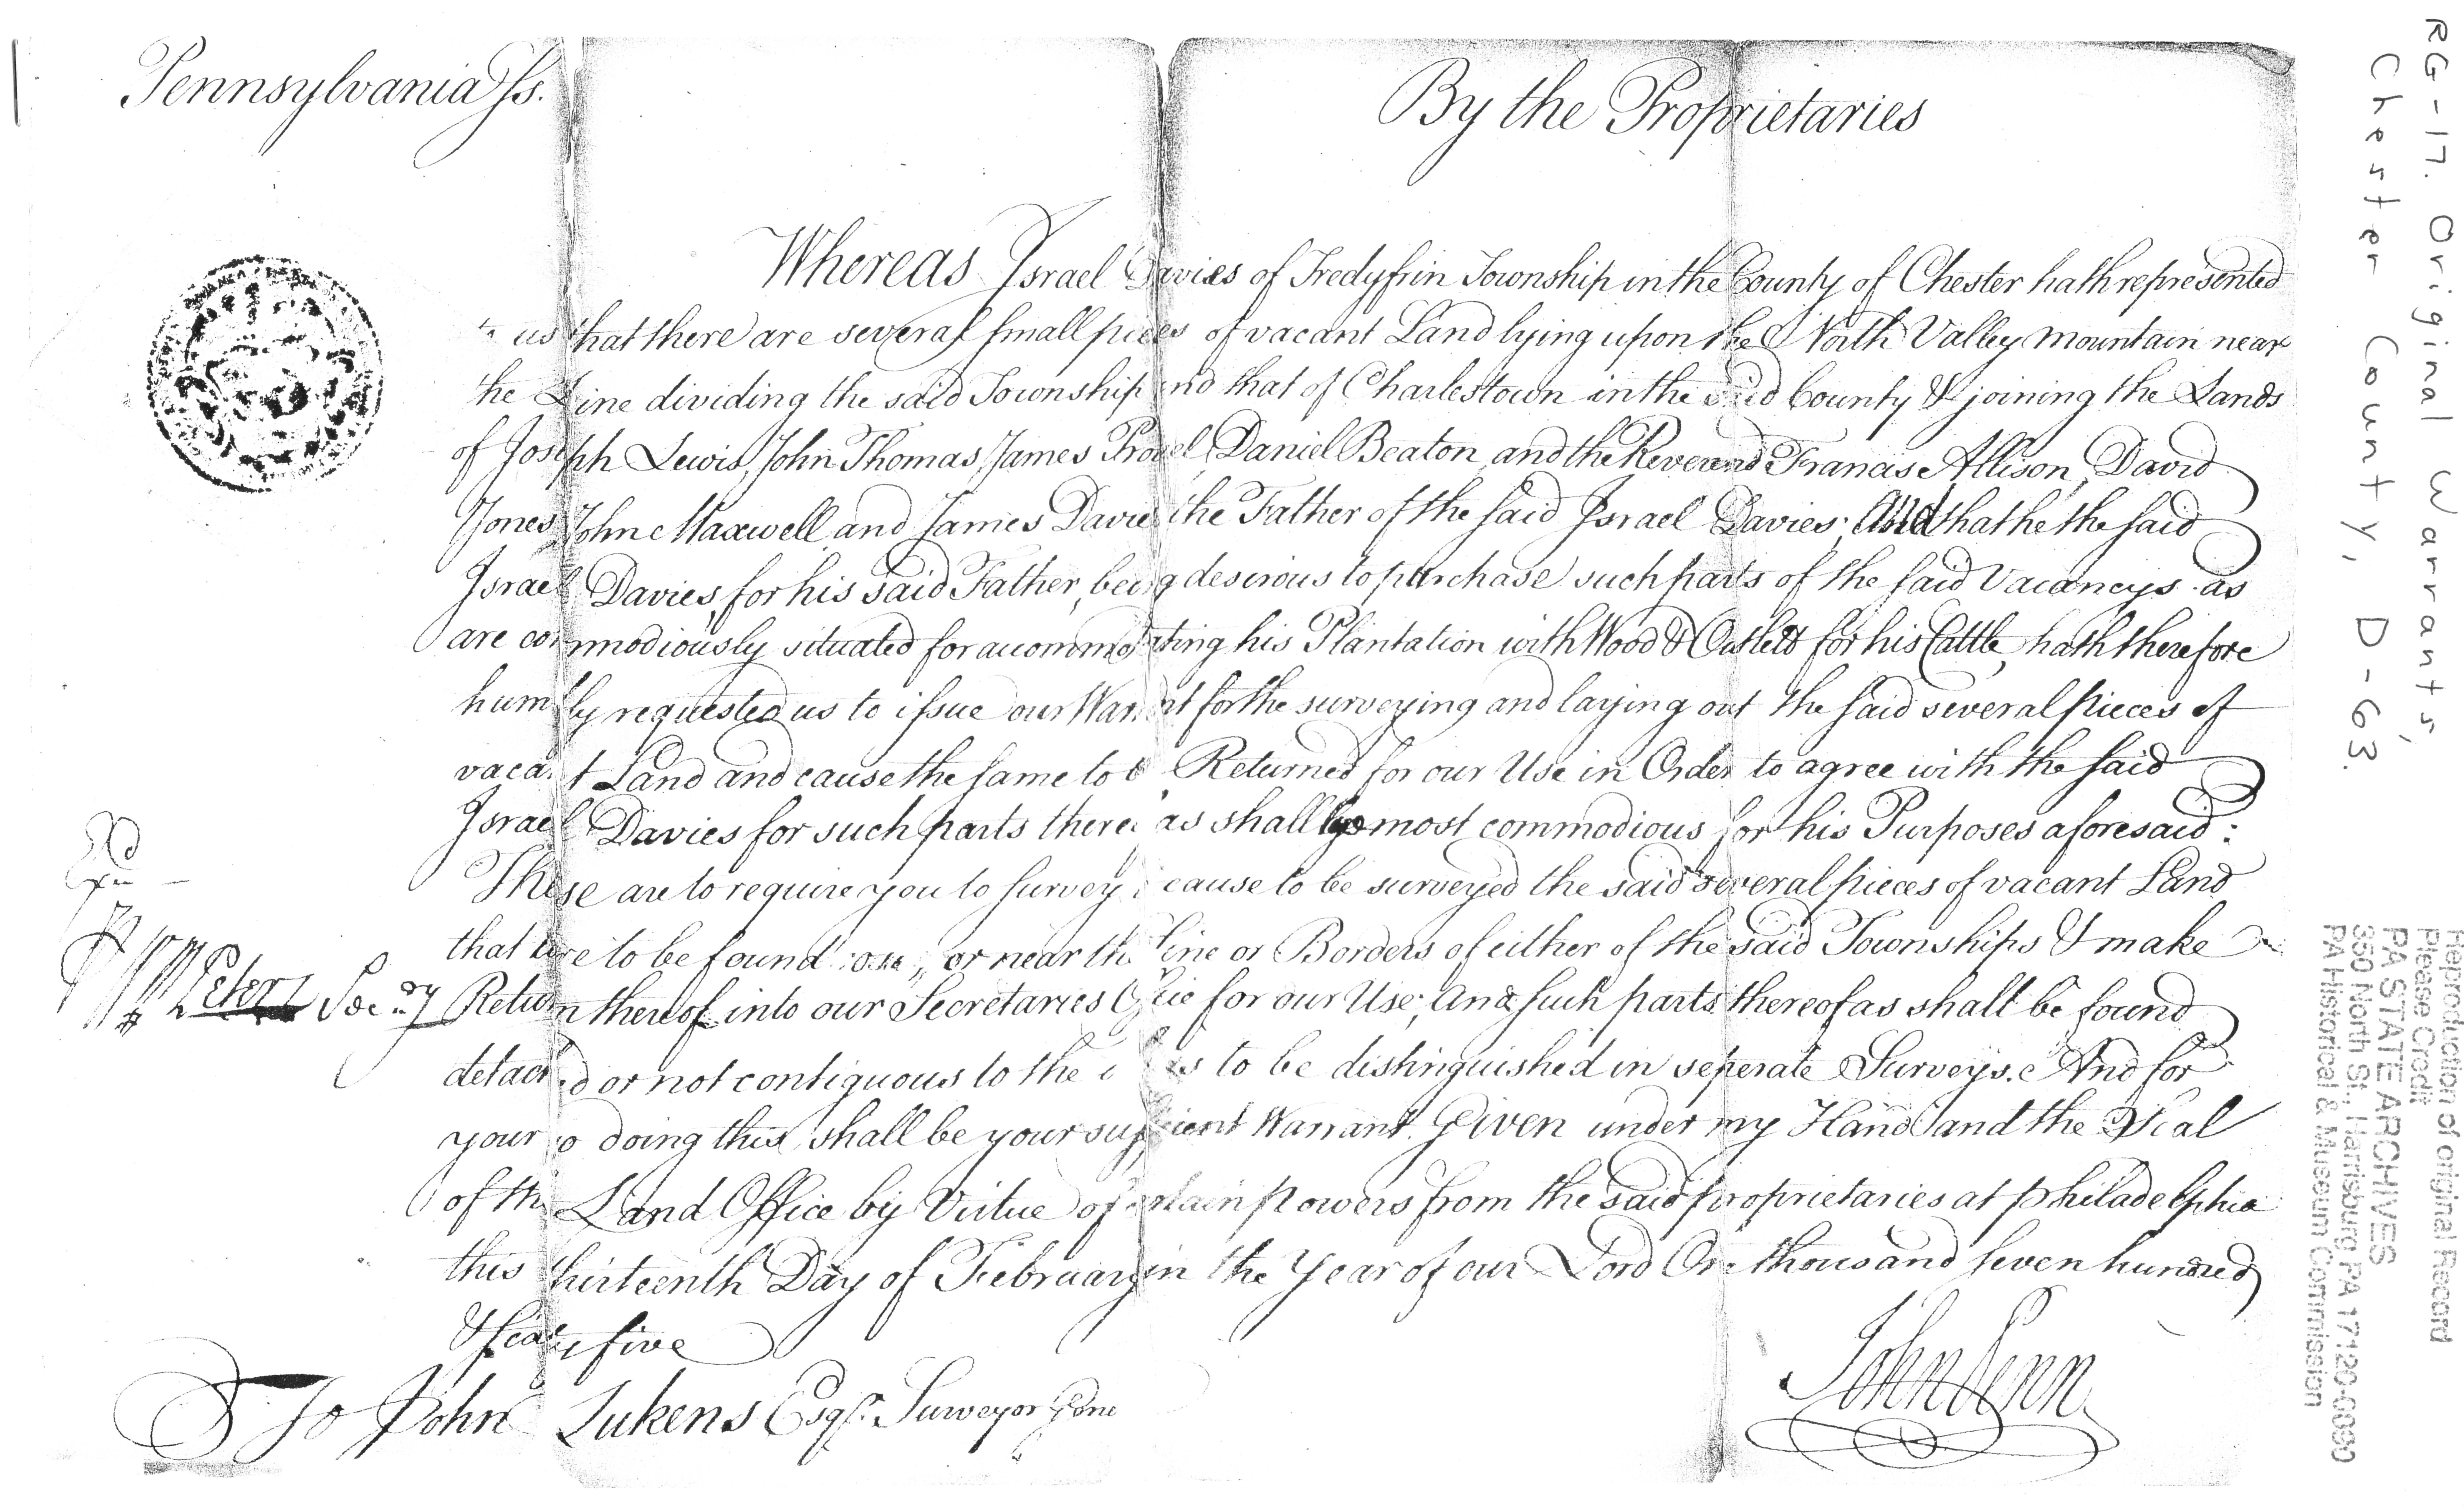 Pennsylvania ss.
By the Proprietaries
Whereas Israel Davies of Tredyfrin Township in the County of Chester hath represented
to us that there are several small pieces of vacant Land lying upon the North Valley Mountain near
the Line dividing the said Township and that of Charlestown in the said County & joining the Lands
of Joseph Lewis, John Thomas, James Daniel Beaton, and the Reverend Francis Allison, David
Jones, John Maxwell and James Davies the Father of the said Israel Davies; And that he the said
Israel Davies, for his said Father, being desirous to purchase such parts of the said Vacancys as
are commodiously situated for accommodating his Plantation with Wood & Outlets for his Cattle, hath therefore
humbly requested us to issue our Warrant for the surveying and laying out the said several pieces of
vacant Land and cause the same to be Returned for our Use in Order to agree with the said
Israel Davies for such parts thereof as shall be most commodious for his Purposes aforesaid:
These are to require you to survey or cause to be surveyed the said several pieces of vacant Land
that are to be found on, or near the Line or Borders of either of the said Townships & make
Return thereof into our Secretaries Office for our Use; And such parts thereof as shall be found
detached or not contiguous to the to be distinguished in seperate Surveys. And for
your so doing this shall be your sufficient Warrant. Given under my Hand and the Seal
of the Land Office by Virtue of certain powers from the said proprietaries at Philadelphia
this thirteenth Day of February in the Year of our Lord One thousand seven hundred
& sixty five
Peters Secry
John Penn
To John Lukens Esqr. Surveyor Gene
RG-17. Original Warrants,
Chester County, D-63.
Reproduction of original Record
Please Credit
PA STATE ARCHIVES
350 North St., Harrisburg PA 17120-0090
PA Historical & Museum Commission